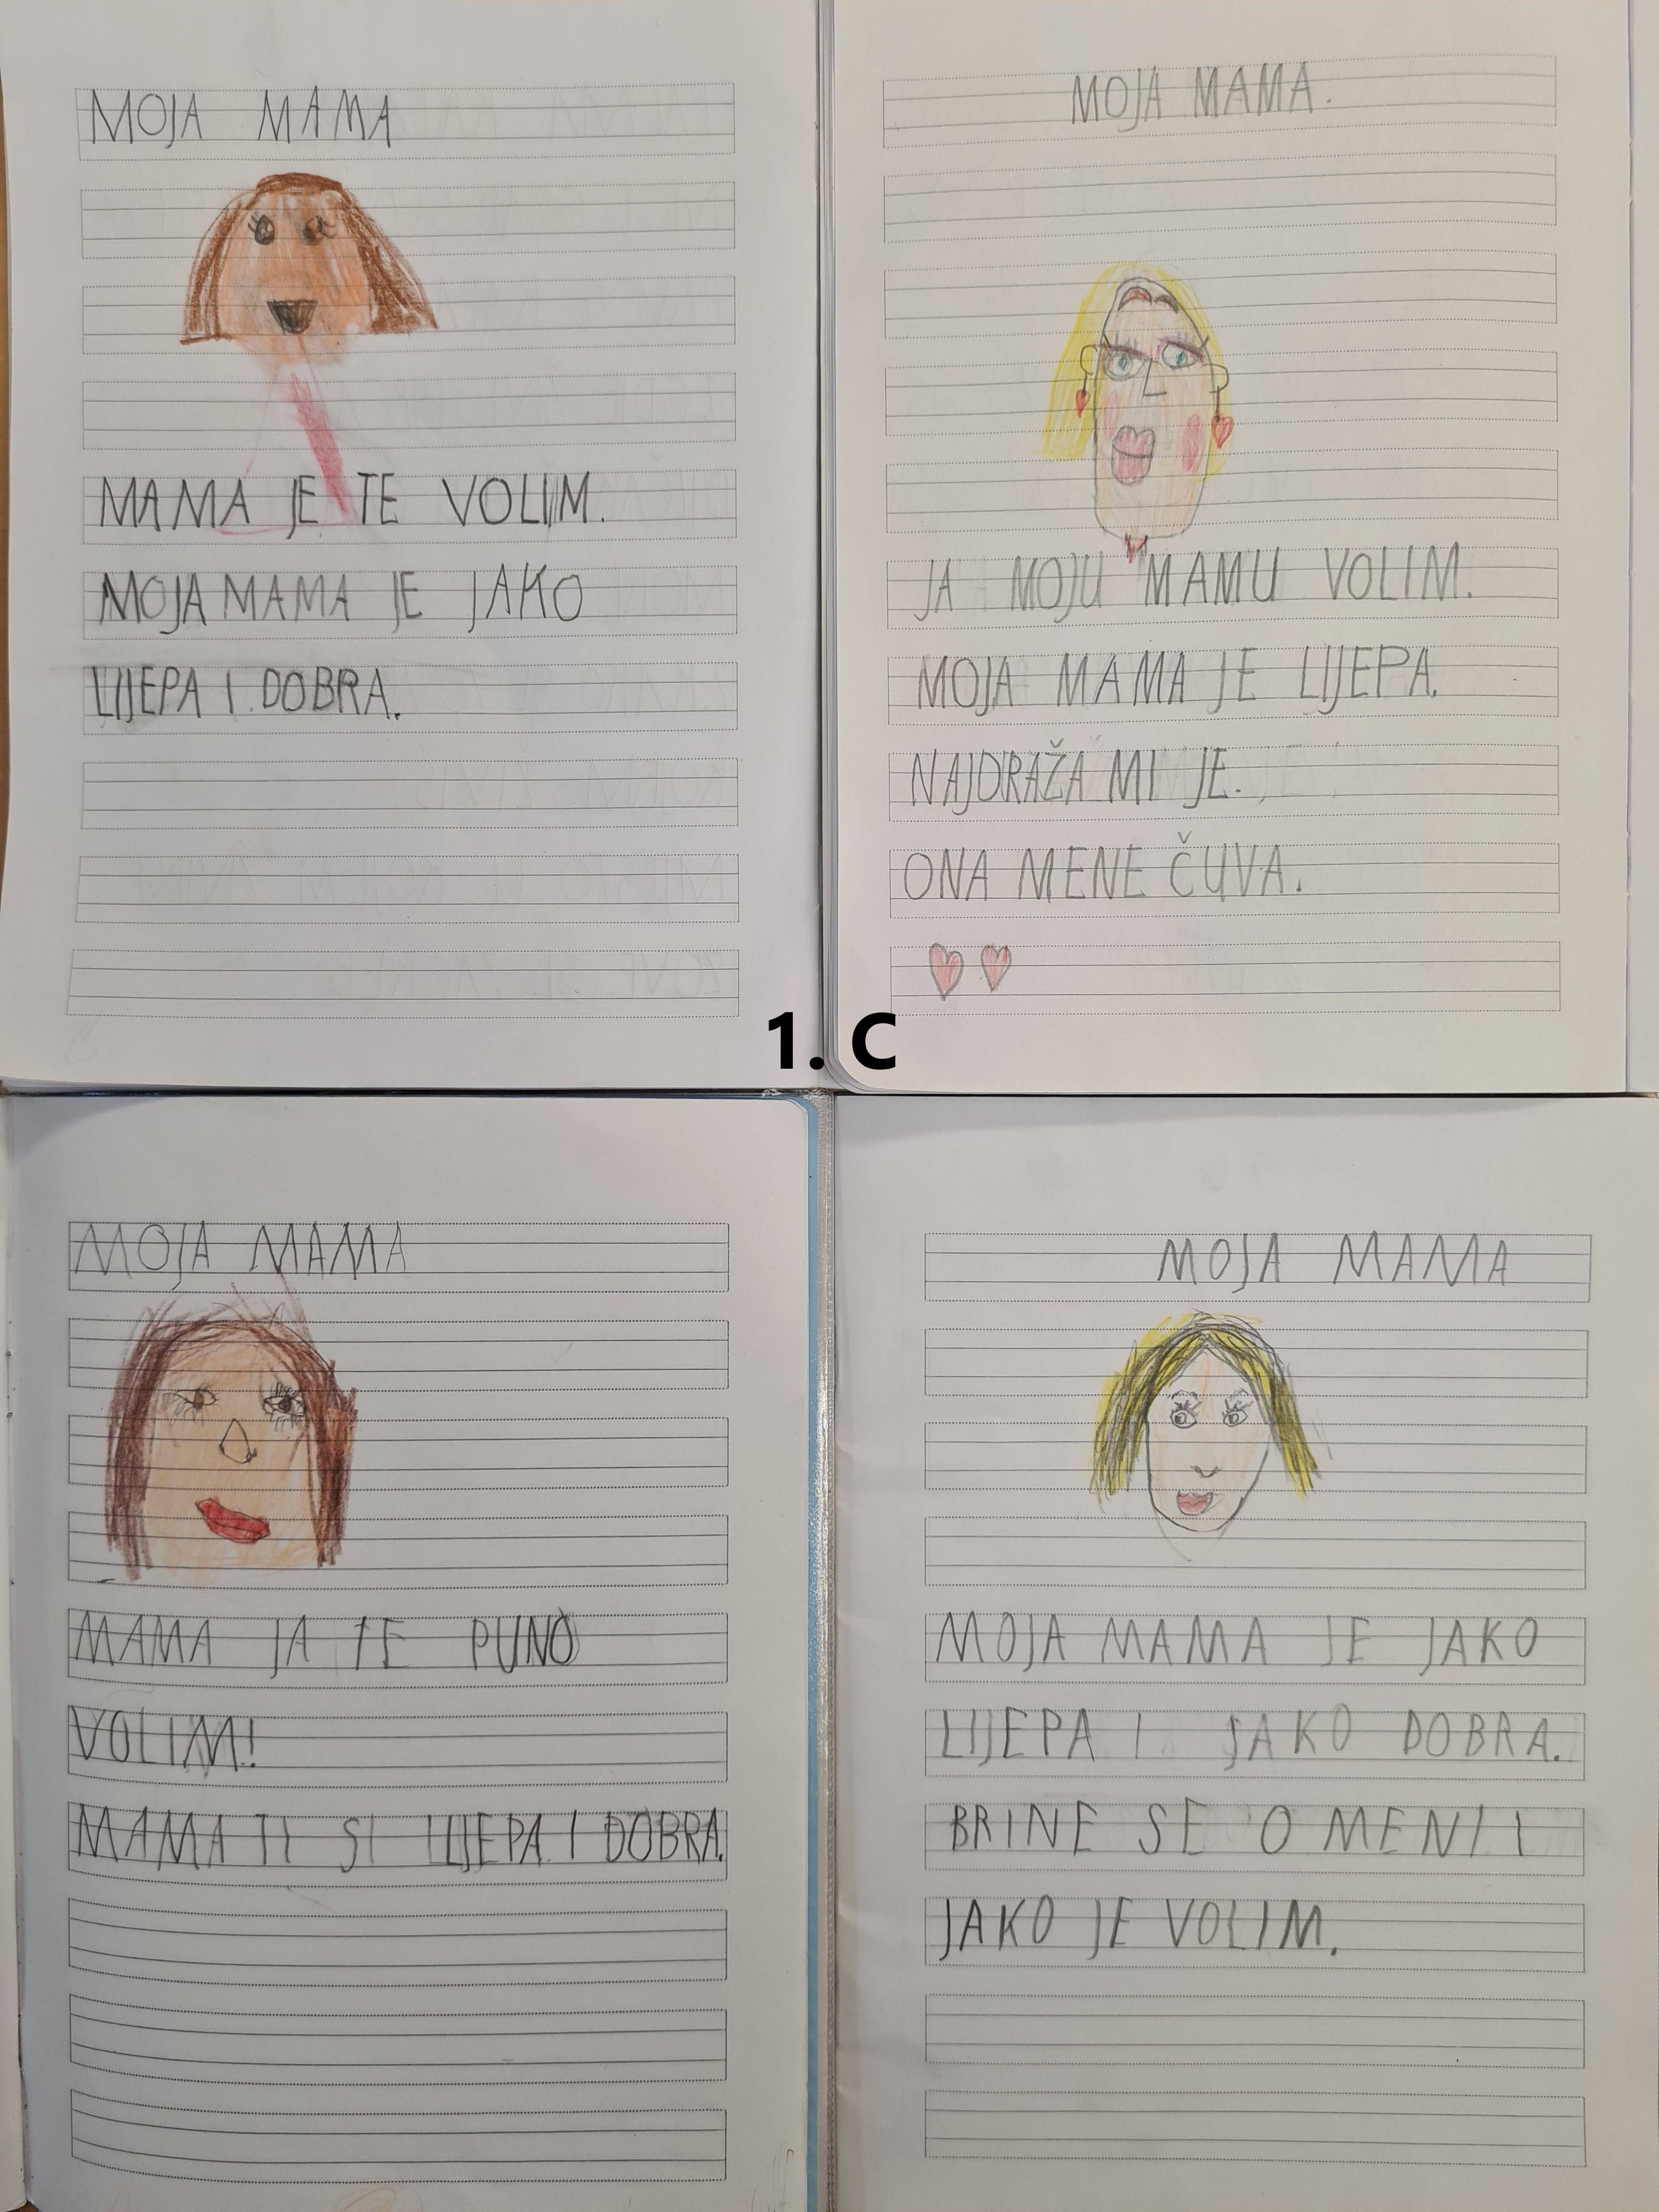 MOJA MAMA
MAMA JE TE VOLIM.
MOJA MAMA JE JAKO
LIJEPA I DOBRA.
MOJA MAMA.
JA MOJU MAMU VOLIM.
MOJA MAMA JE LIJEPA.
NAJDRAŽA MI JE.
ONA MENE ČUVA.
1. C
MOJA MAMA
MAMA JA TE PUNO
VOLIM!
MAMA TI SI LIJEPA I DOBRA.
MOJA MAMA
MOJA MAMA JE JAKO
LIJEPA I JAKO DOBRA.
BRINE SE O MENI I
JAKO JE VOLIM.